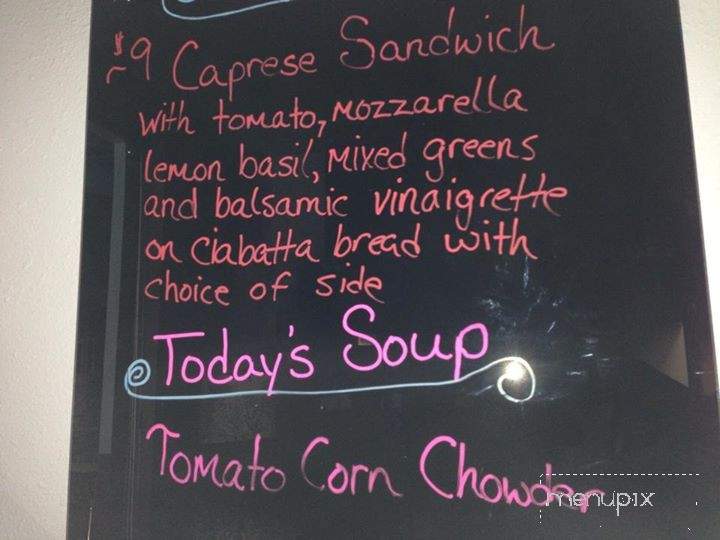 $9 Caprese Sandwich
with tomato, mozzarella
lemon basil, mixed greens
and balsamic vinaigrette
on ciabatta bread with
choice of side
Today's Soup
Tomato Corn Chowder
menupix